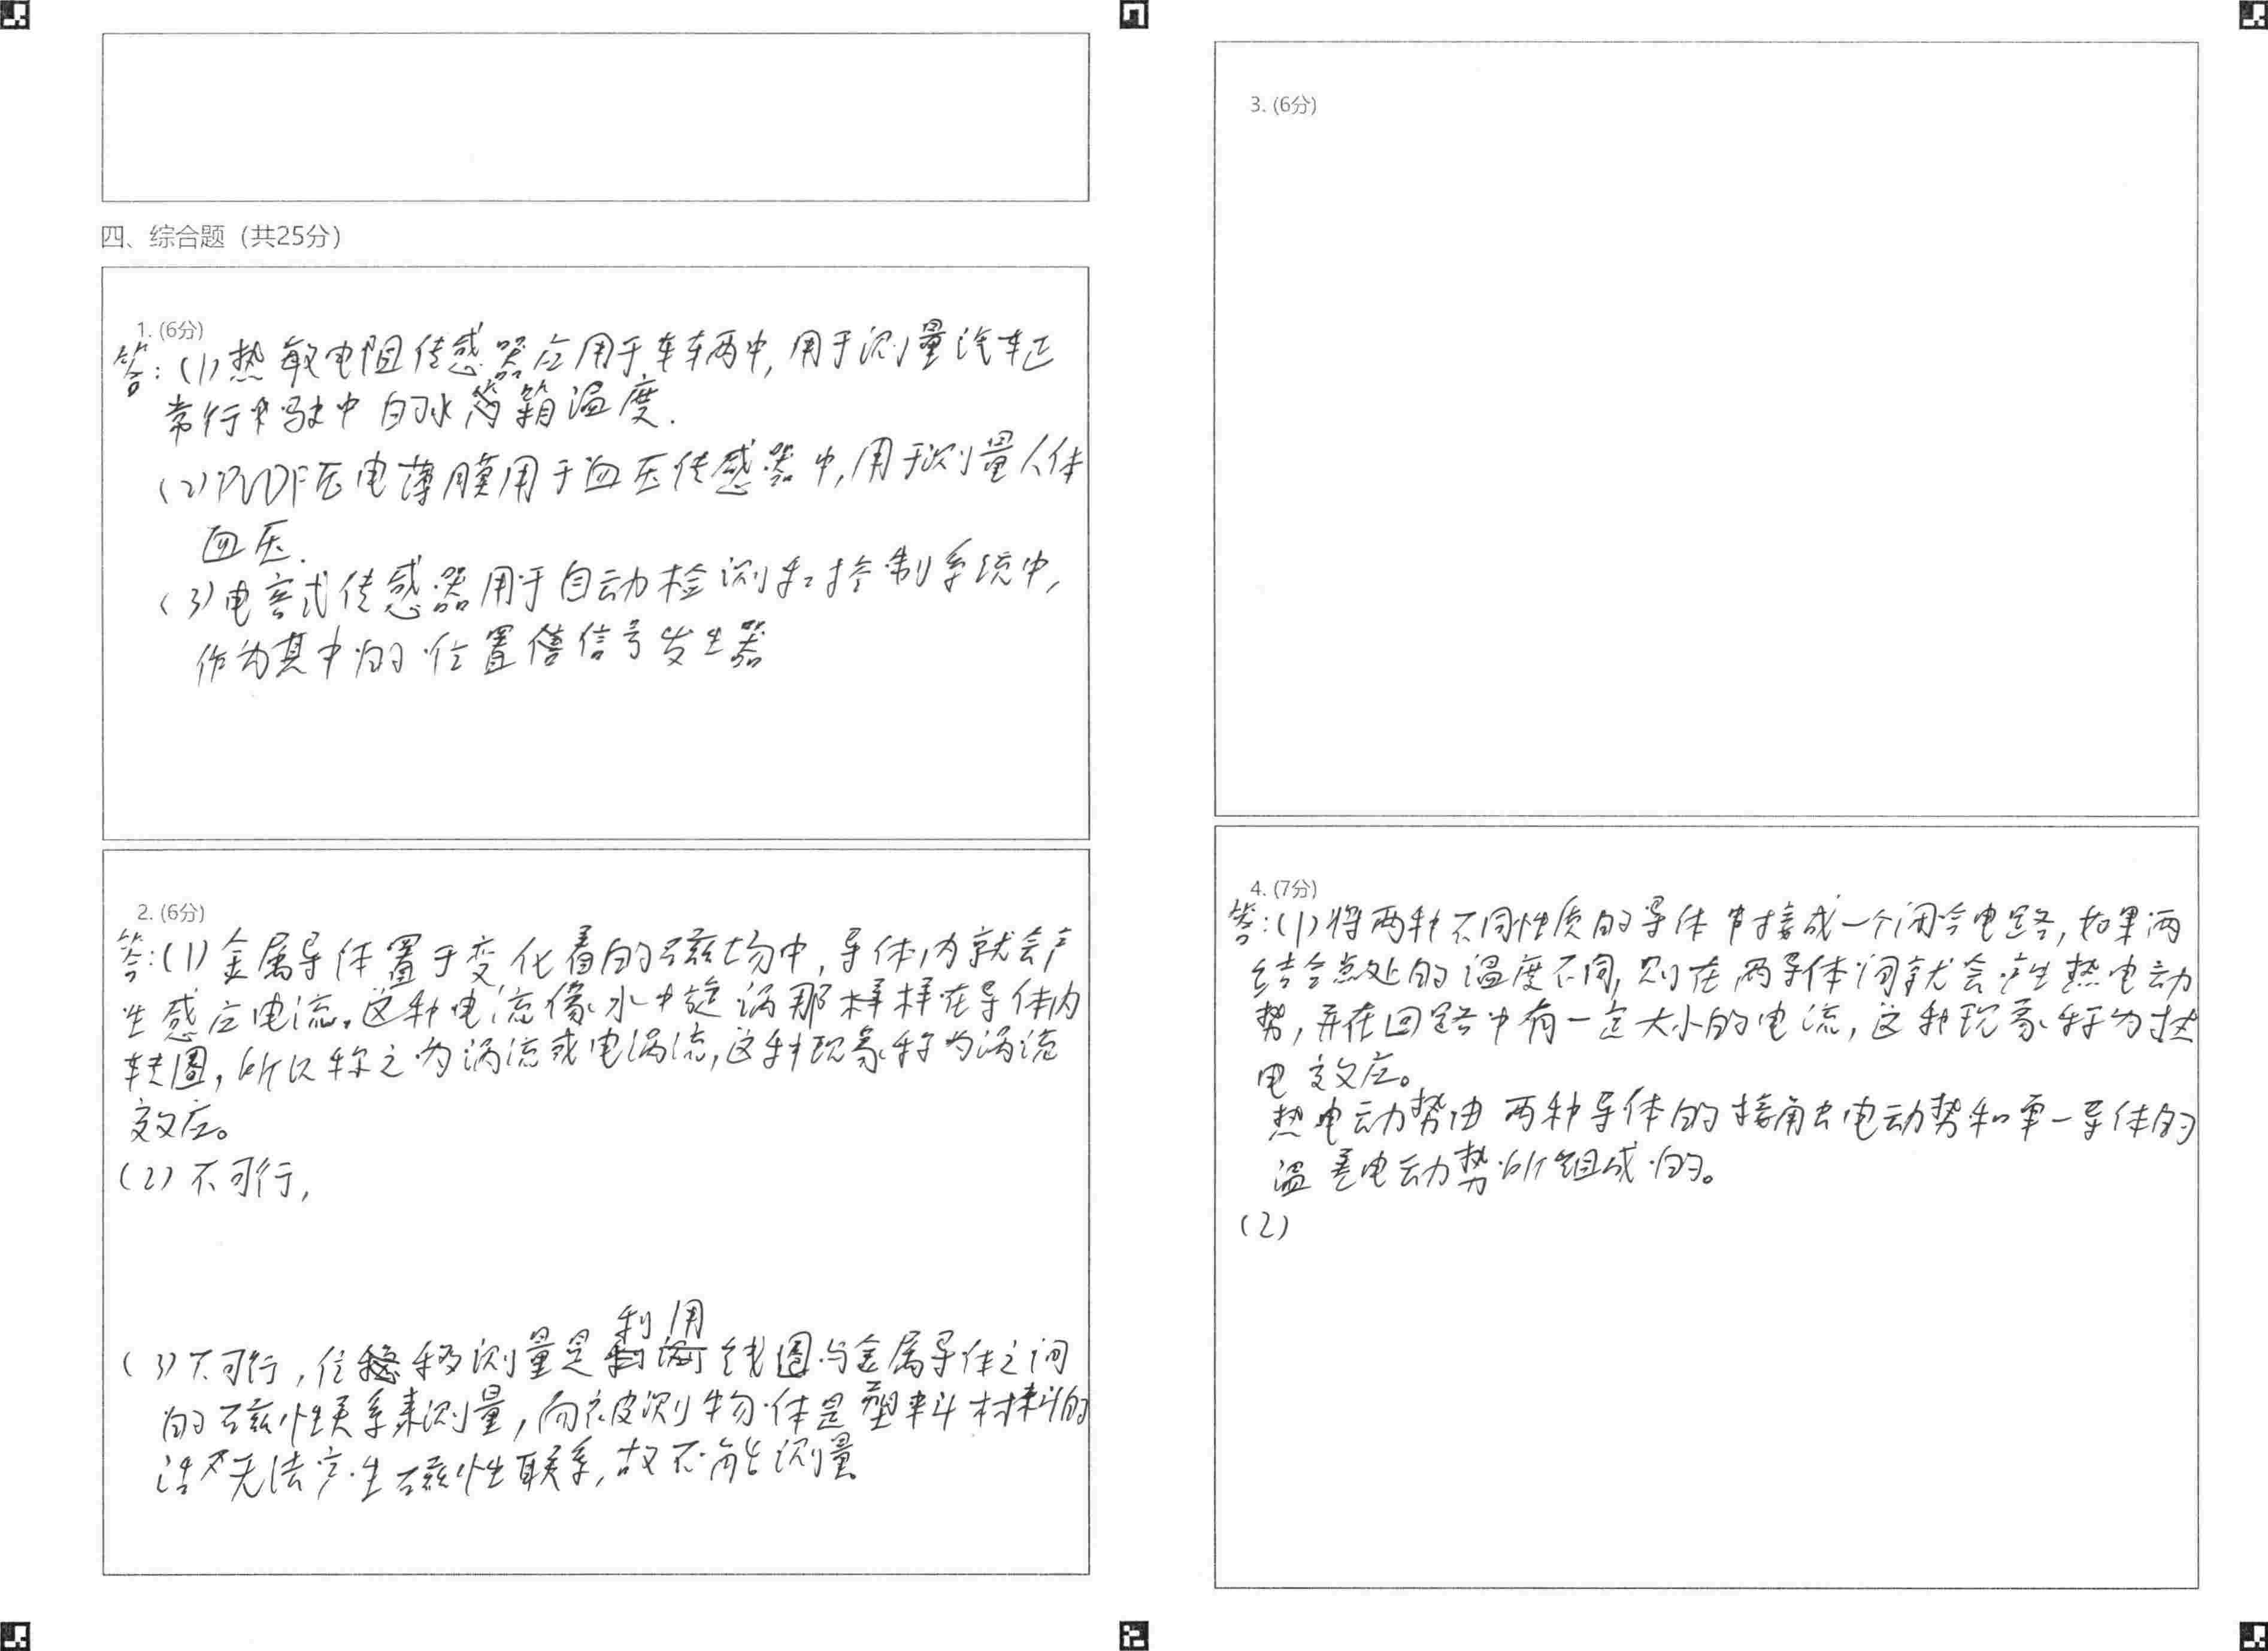 四、综合题（共25分）
1. (6分)
答:(1)热敏电阻传感器应用于车辆中,用于测量汽车正
常行驶中的水箱温度.
(2)PVDF压电薄膜用于血压传感器中,用于测量人体
血压.
(3)电容式传感器用于自动检测和控制系统中,
作为其中的位置信号发生器
2. (6分)
答:(1)金属导体置于变化着的磁场中,导体内就会产
生感应电流。这种电流像水中旋涡那样在导体内
转圈,所以称之为涡流或电涡流,这种现象称为涡流
效应。
(2)不可行,
利用
(3)不可行,位移测量是线圈与金属导体之间
的磁性关系来测量,而被测物体是塑料材料的
话无法产生磁性联系,故不能测量
3. (6分)
4. (7分)
答:(1)将两种不同性质的导体串接成一个闭合电路,如果两
结合点处的温度不同,则在两导体间就会产生热电动
势,并在回路中有一定大小的电流,这种现象称为热
电效应。
热电动势由两种导体的接触电动势和单一导体的
温差电动势所组成的。
(2)